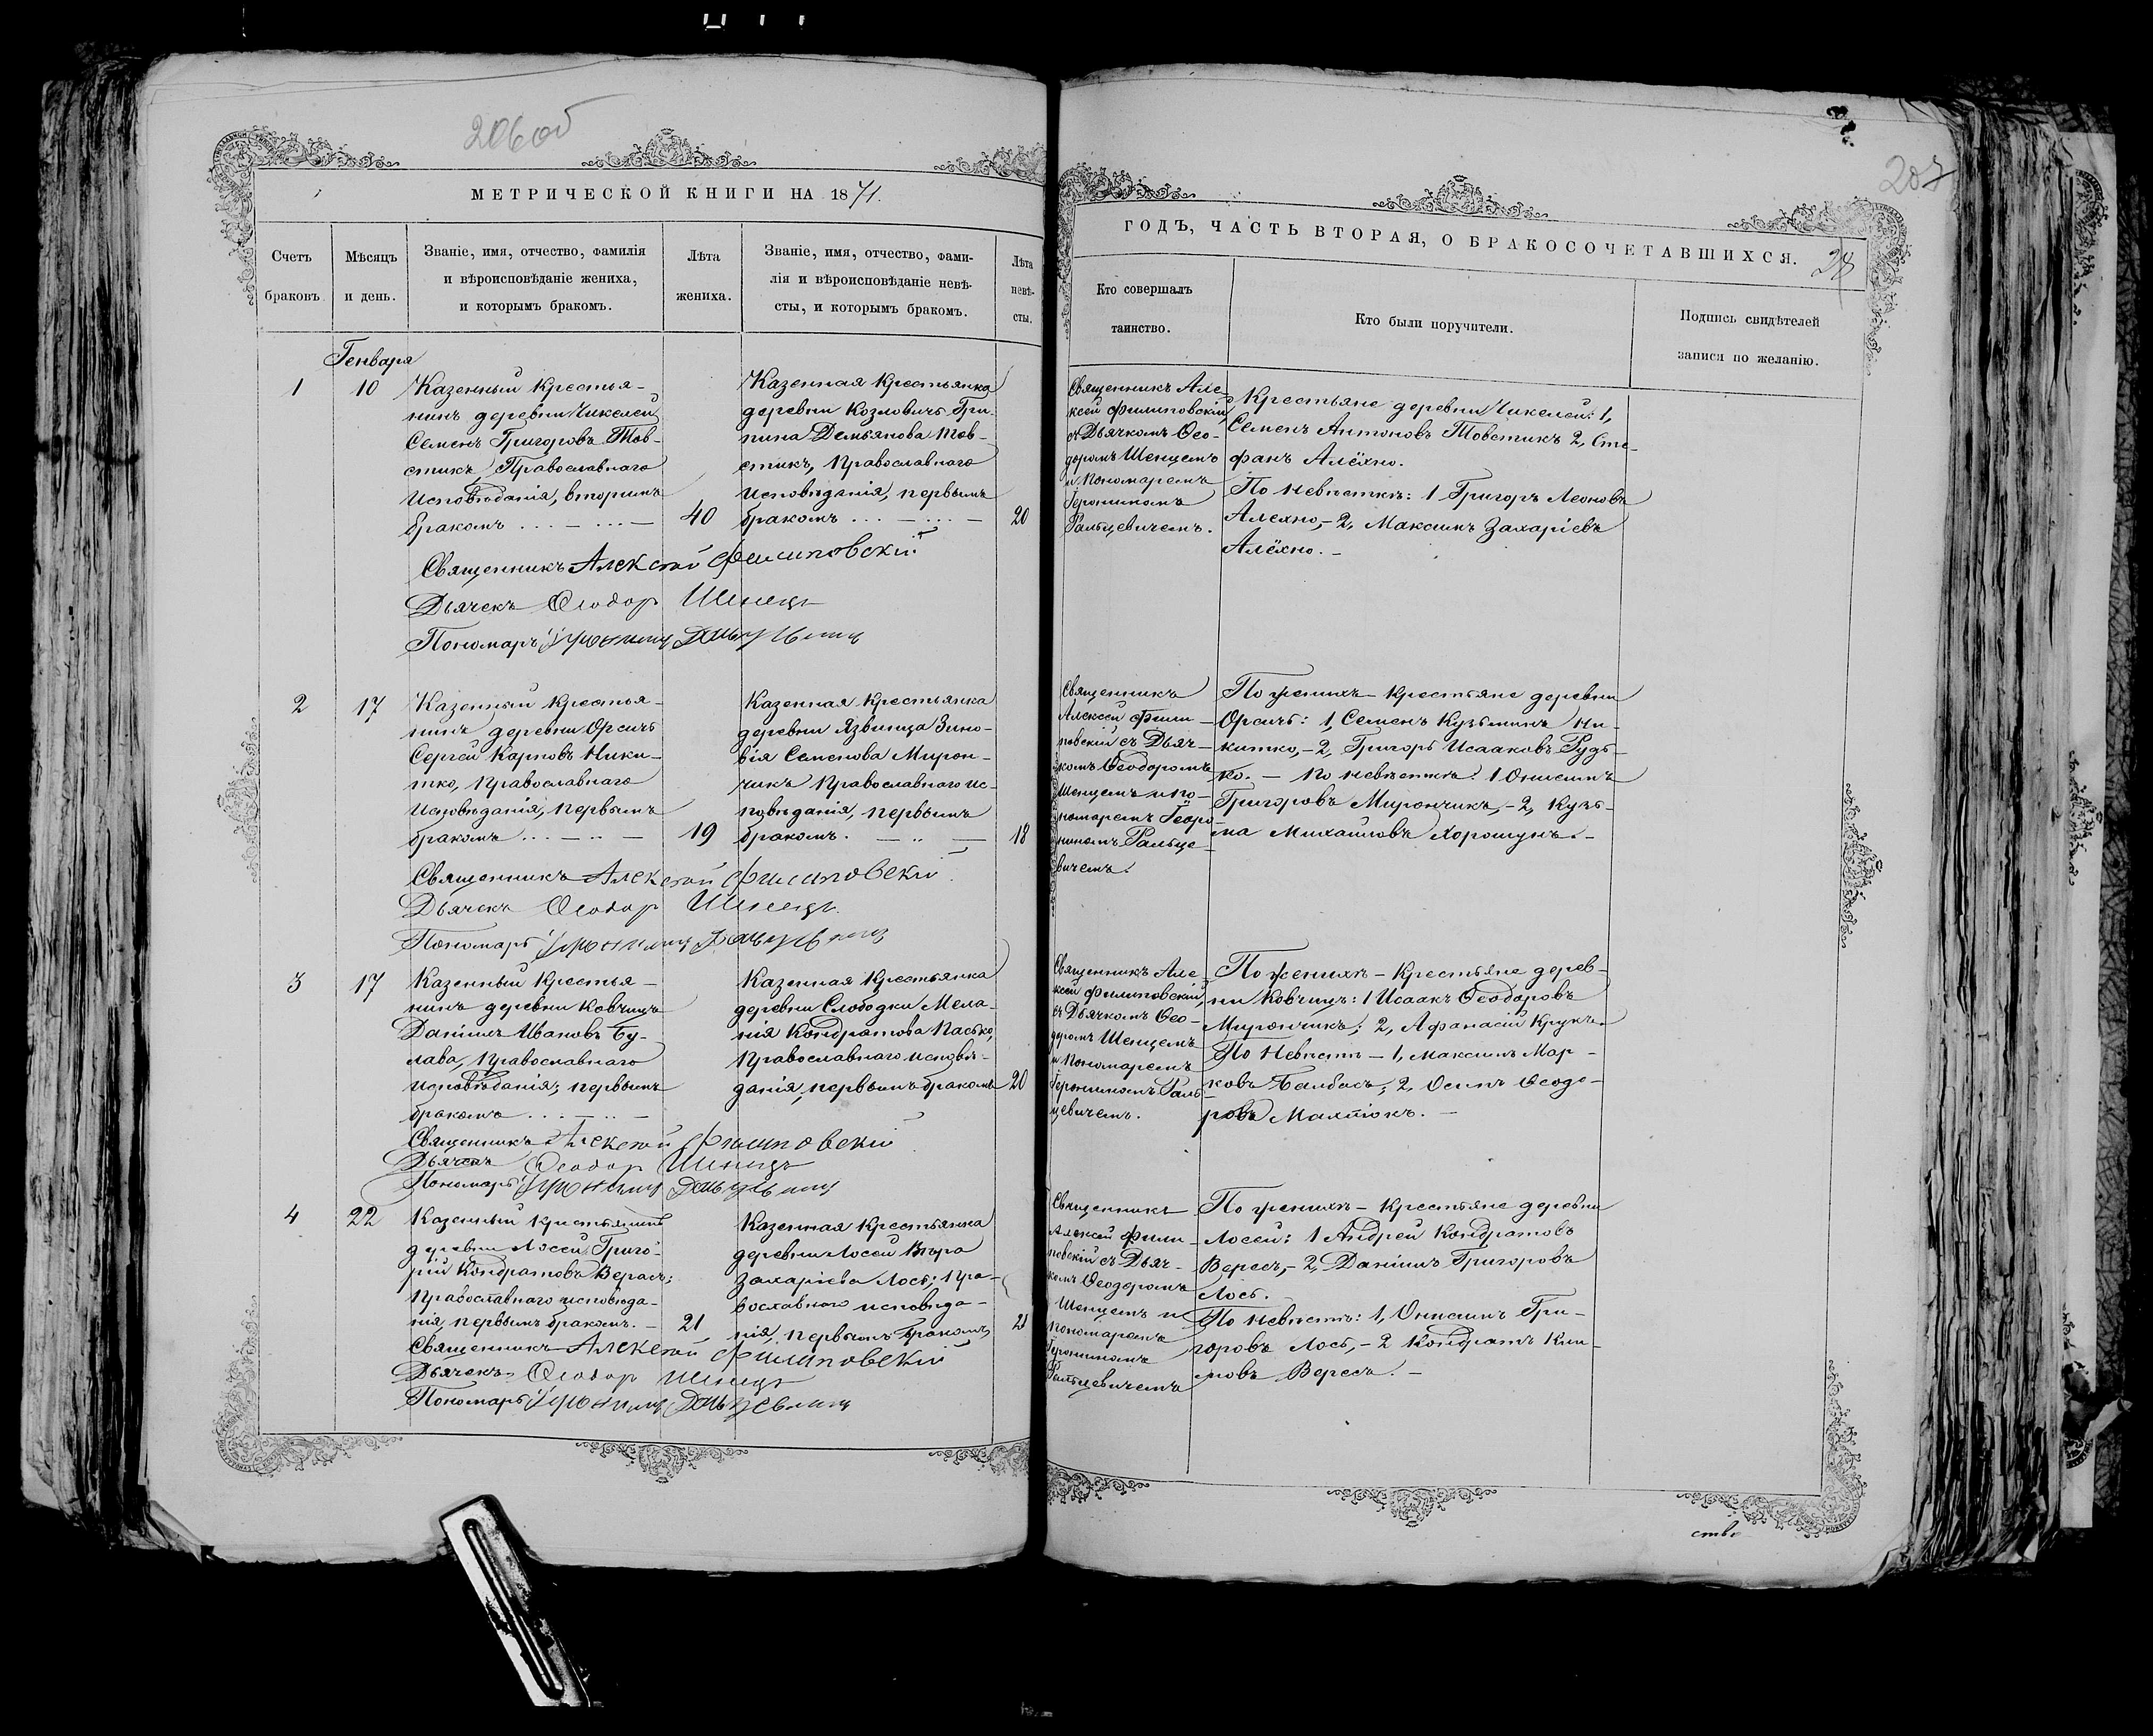 206 об
МЕТРИЧЕСКОЙ КНИГИ НА 1871.
Счетъ браковъ.
Мѣсяцъ и день.
Званіе, имя, отчество, фамилія
и вѣроисповѣданіе жениха,
и которымъ бракомъ.
Лѣта жениха.
Званіе, имя, отчество, фами-
лія и вѣроисповѣданіе невѣ-
сты, и которымъ бракомъ.
Лѣта невѣ-
сты.
Генваря
1 10
Казенный крестья-
нинъ деревни Чикелей
Семенъ Григоровъ Тов-
стикъ, Православнаго
исповѣданія, вторымъ
бракомъ
40
Казенная крестьянка
деревни Козловичъ Гри-
пина Демьянова Тов-
стикъ, Православнаго
исповѣданія, первымъ
бракомъ
20
Священникъ Алексѣй Филиповскій
Дьячекъ Ѳеодор Шенецъ
Пономаръ
2 17
Казенный крестья-
нинъ деревни Оресичъ
Сергей Карповъ Ники-
тко, Православнаго
исповѣданія, первымъ
бракомъ
19
Казенная крестьянка
деревни Язвинца Зино-
вія Семенова Мирон-
чикъ Православнаго ис-
повѣданія, первымъ
бракомъ.
18
Священникъ Алексѣй Филиповскій
Дьячекъ Ѳеодор Шенецъ
Пономарь
3 17
Казенный крестья-
нинъ деревни Ковчицъ
Даніилъ Ивановъ Бу-
лава, Православнаго
исповѣданія, первымъ
бракомъ
Казенная крестьянка
деревни Слободки Мела-
нія Кондратова Пасько,
Православнаго исповѣ-
данія, первымъ бракомъ
20
Священникъ Алексѣй Филиповскій
Дьячекъ Ѳеодор Шенецъ
Пономарь
4 22
Казенный крестьянинъ
деревни Лосей Григо-
рій Кондратовъ Верасъ;
Православнаго исповѣда-
нія, первымъ бракомъ.
21
Казенная крестьянка
деревни Лосей Вѣра
Захаріева Лось; Пра-
вославнаго исповѣда-
нія, первымъ бракомъ
21
Священникъ Алексѣй Филиповскій
Дьячекъ Ѳеодор Шенецъ
Пономарь
207
ГОДЪ, ЧАСТЬ ВТОРАЯ, О БРАКОСОЧЕТАВШИХСЯ.
Кто совершалъ
таинство.
Кто были поручители.
Подпись свидѣтелей
записи по желанію.
Священникъ Але-
ксей Филиповскій,
съ Дьячкомъ Ѳео-
доромъ Шенцемъ
и Пономаремъ
Іеронимомъ
Рапцевичемъ.
Крестьяне деревни Чикелей: 1,
Семенъ Антоновъ Товстикъ 2, Сте-
фанъ Алёхно.
По невѣсткѣ: 1 Григоръ Леоновъ
Алехно,- 2, Максимъ Захаріевъ
Алёхно. -
Священникъ
Алексей Фили-
повскій съ Дьяч-
комъ Ѳеодоромъ
Шенцемъ и по-
номаремъ Іеро-
нимомъ Рапце-
вичемъ.
По женихѣ - крестьяне деревни
Оресичъ: 1, Семенъ Кузьминъ Ни-
китко, - 2, Григоръ Исааковъ Рудь-
ко. - По невѣсткѣ: 1 Онисимъ
Григоровъ Мирончикъ, - 2, Кузь-
ма Михайловъ Хорошунъ. -
Священникъ Але-
ксей Филиповскій,
съ Дьячкомъ Ѳео-
доромъ Шенцемъ
и Пономаремъ
Іеронимомъ Рап-
цевичемъ.
По женихѣ - крестьяне дерев-
ни Ковчицъ: 1 Исаакъ Ѳеодоровъ
Мирончикъ; 2, Афанасій Крукъ.
По Невѣстѣ - 1, Максимъ Мар-
ковъ Балбасъ; 2, Осипъ Ѳеодо-
ровъ Махнюкъ. -
Священникъ
Алексей Фили-
повскій съ Дьяч-
комъ Ѳеодоромъ
Шенцемъ и
пономаремъ
Іеронимомъ
Рапцевичемъ
По женихѣ - крестьяне деревни
Лосей: 1 Андрей Кондратовъ
Вересъ, - 2, Даніилъ Григоровъ
Лось.
По невѣстѣ: 1, Онисимъ Гри-
горовъ Лось, - 2 Кондратъ Кли-
мовъ Вересъ. -
ство